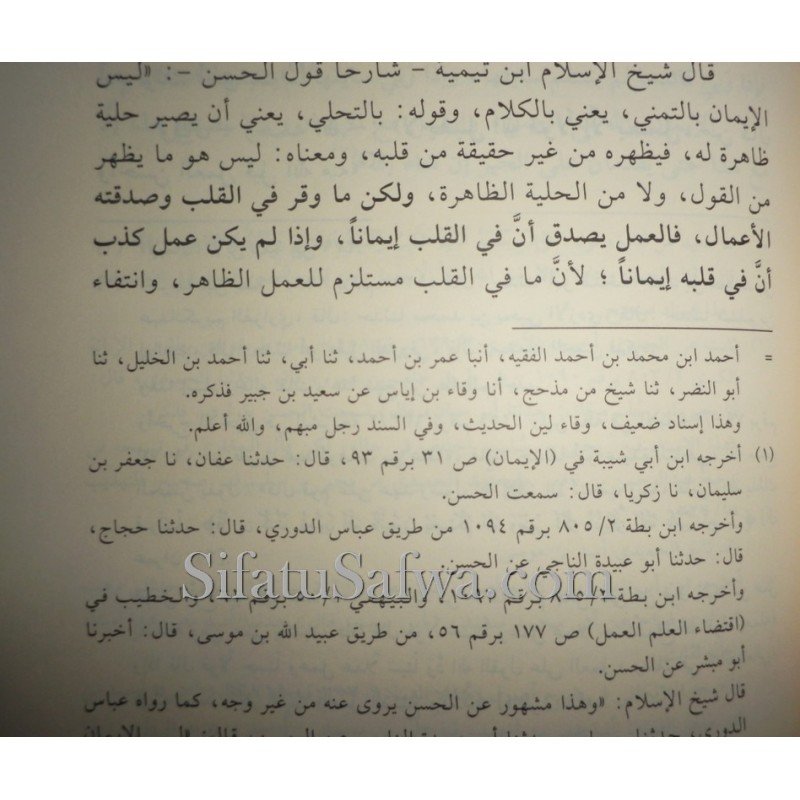 قال شيخ الإسلام ابن تيمية – شارحاً قول الحسن –: «ليس
الإيمان بالتمني، يعني بالكلام، وقوله: بالتحلي، يعني أن يصير حلية
ظاهرة له، فيظهره من غير حقيقة من قلبه، ومعناه: ليس هو ما يظهر
من القول، ولا من الحلية الظاهرة، ولكن ما وقر في القلب وصدقته
الأعمال، فالعمل يصدق أنَّ في القلب إيماناً، وإذا لم يكن عمل كذب
أنَّ في قلبه إيماناً ؛ لأنَّ ما في القلب مستلزم للعمل الظاهر، وانتفاء
= أحمد ابن محمد بن أحمد الفقيه، أنبا عمر بن أحمد، ثنا أبي، ثنا أحمد بن الخليل، ثنا
أبو النضر، ثنا شيخ من مذحج، أنا وقاء بن إياس عن سعيد بن جبير فذكره.
وهذا إسناد ضعيف، وقاء لين الحديث، وفي السند رجل مبهم، والله أعلم.
(١) أخرجه ابن أبي شيبة في (الإيمان) ص ٣١ برقم ٩٣، قال: حدثنا عفان، نا جعفر بن
سليمان، نا زكريا، قال: سمعت الحسن.
وأخرجه ابن بطة ٢/ ٨٠٥ برقم ١٠٩٤ من طريق عباس الدوري، قال: حدثنا حجاج،
قال: حدثنا أبو عبيدة الناجي عن الحسن.
SifatuSafwa.com
وأخرجه ابن بطة برقم والبيهقي برقم والخطيب في
(اقتضاء العلم العمل) ص ١٧٧ برقم ٥٦، من طريق عبيد الله بن موسى، قال: أخبرنا
أبو مبشر عن الحسن.
قال شيخ الإسلام: «وهذا مشهور عن الحسن يروى عنه من غير وجه، كما رواه عباس
الدوري، حدثنا